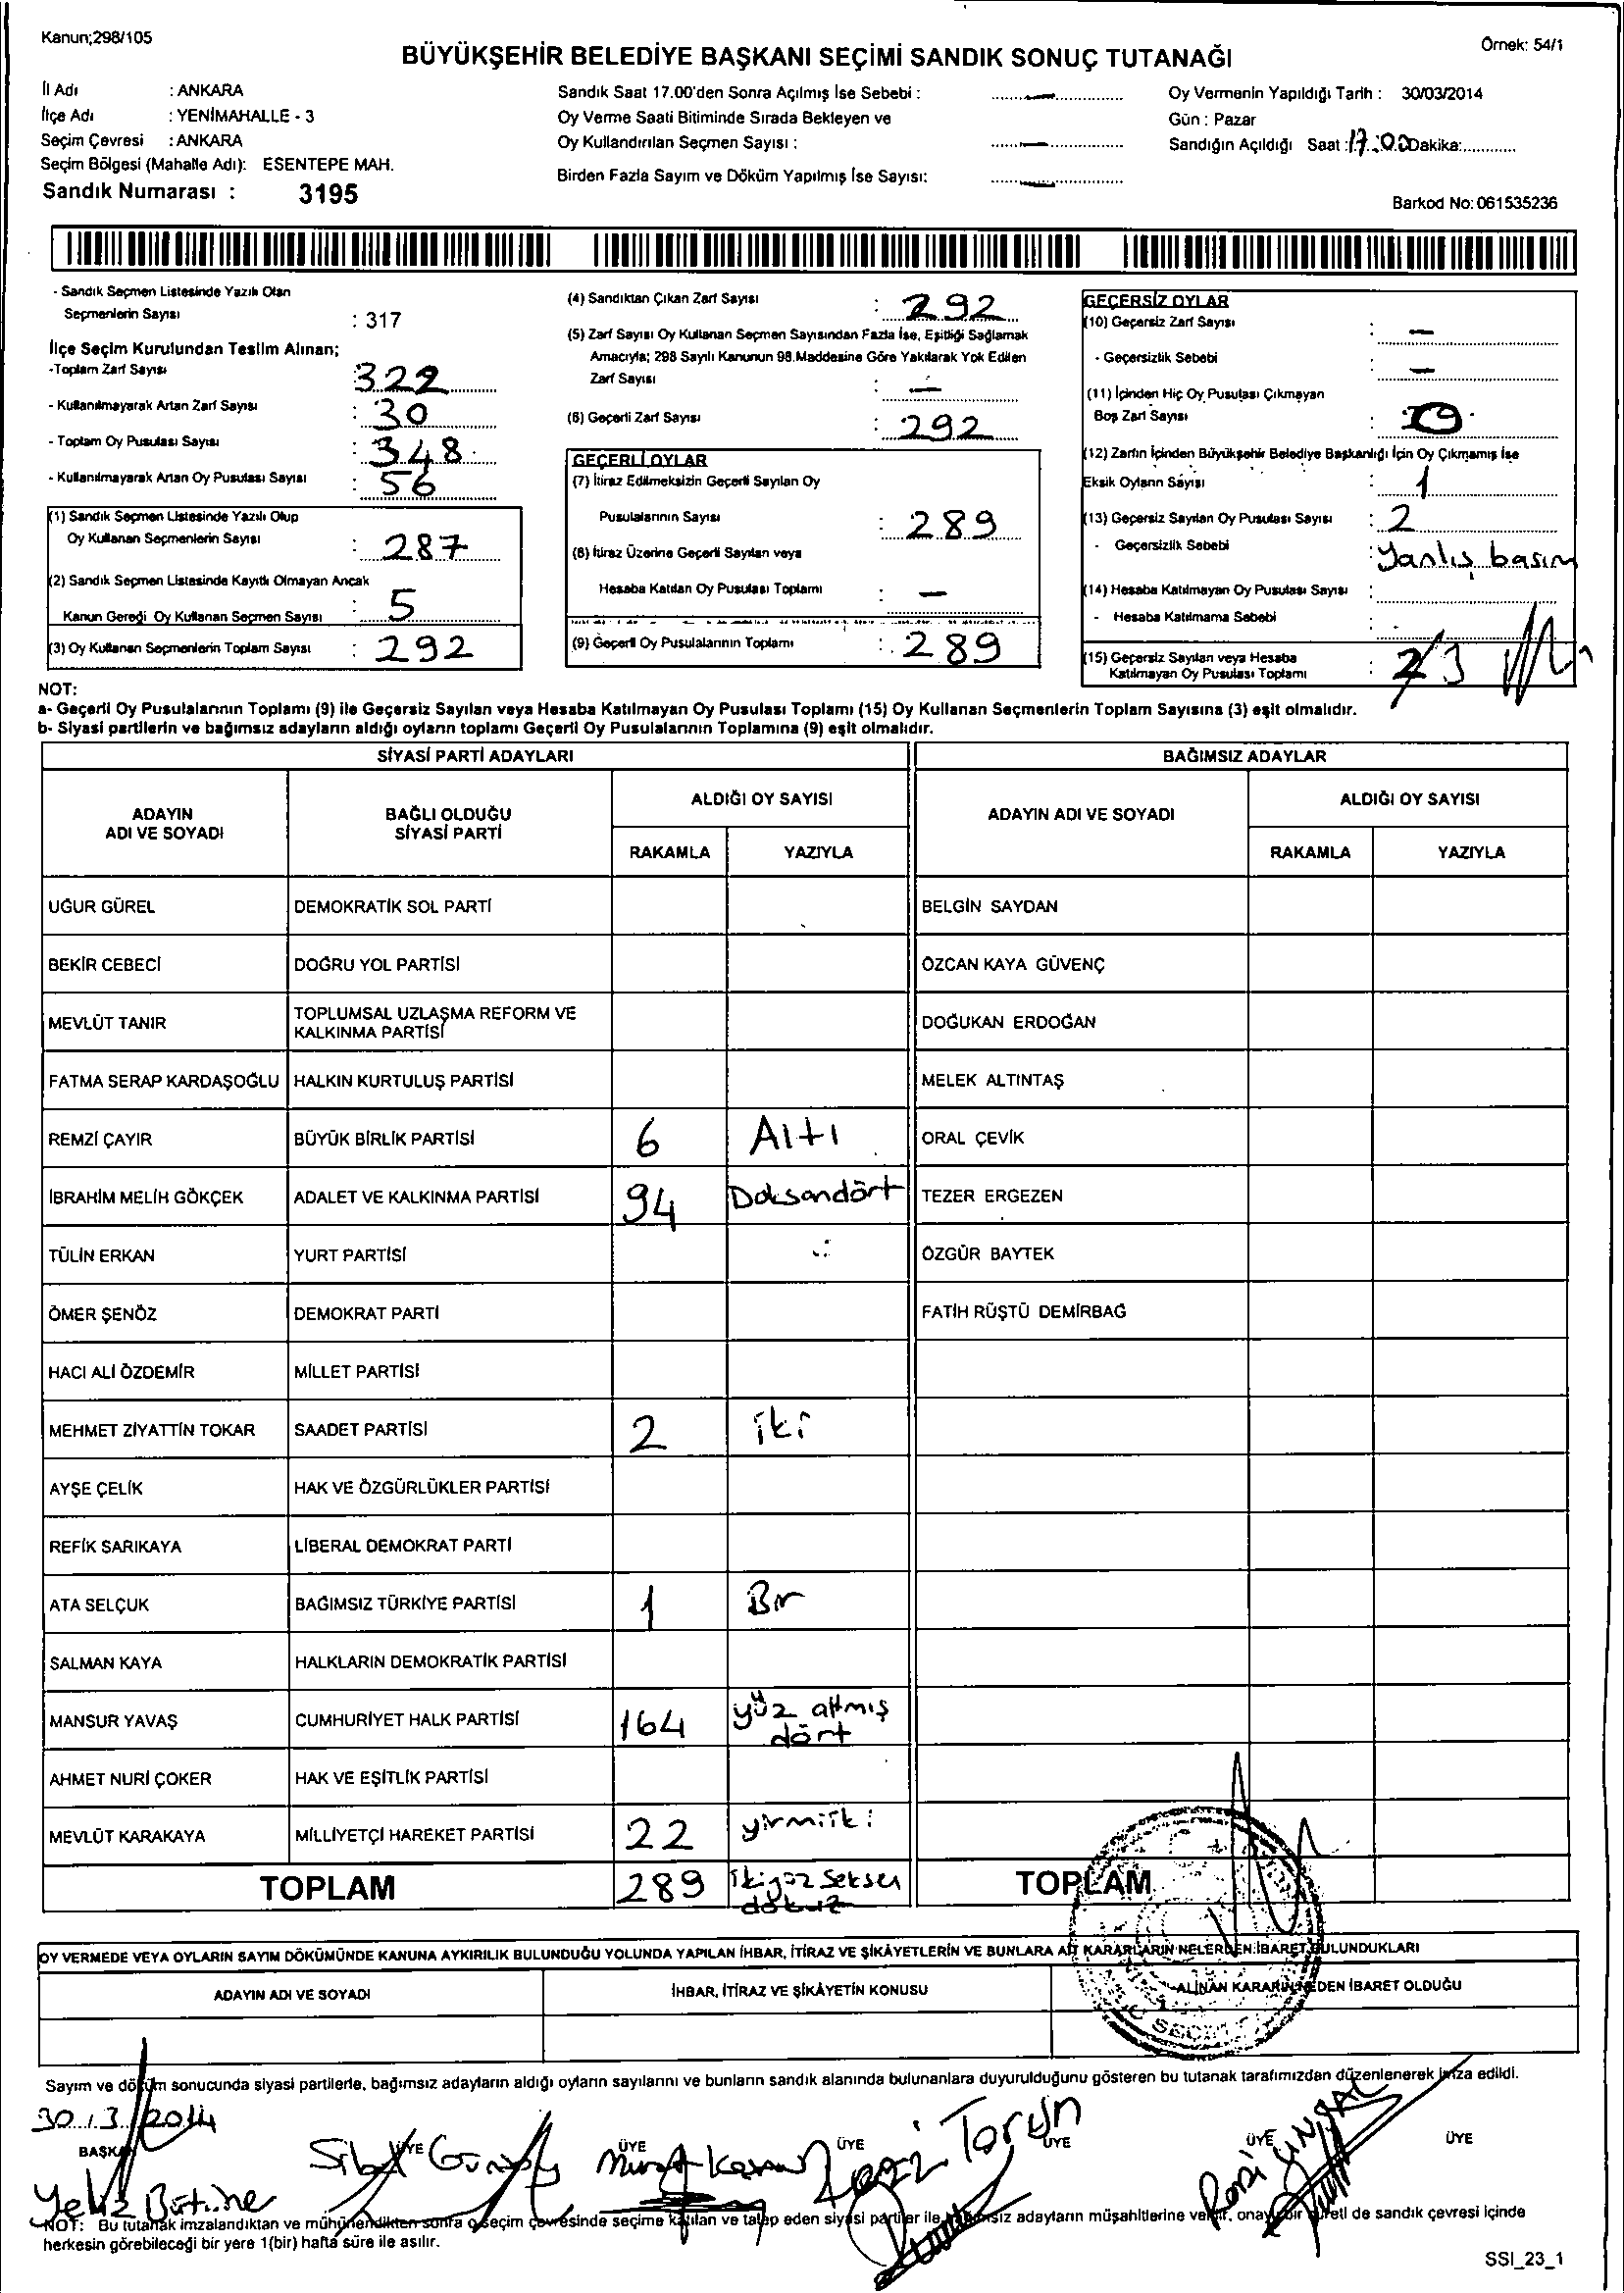 Kanun;298/105
Örnek: 54/1
BÜYÜKŞEHİR BELEDİYE BAŞKANI SEÇİMİ SANDIK SONUÇ TUTANAĞI
İl Adı : ANKARA
İlçe Adı : YENİMAHALLE - 3
Seçim Çevresi : ANKARA
Seçim Bölgesi (Mahalle Adı): ESENTEPE MAH.
Sandık Numarası : 3195
Sandık Saat 17.00'den Sonra Açılmış İse Sebebi : —
Oy Verme Saati Bitiminde Sırada Bekleyen ve
Oy Kullandırılan Seçmen Sayısı : —
Birden Fazla Sayım ve Döküm Yapılmış İse Sayısı: —
Oy Vermenin Yapıldığı Tarih : 30/03/2014
Gün : Pazar
Sandığın Açıldığı Saat : 17.00 Dakika:............
Barkod No: 061535236
- Sandık Seçmen Listesinde Yazılı Olan
Seçmenlerin Sayısı : 317
İlçe Seçim Kurulundan Teslim Alınan;
-Toplam Zarf Sayısı : 322
- Kullanılmayarak Artan Zarf Sayısı : 30
- Toplam Oy Pusulası Sayısı : 348
- Kullanılmayarak Artan Oy Pusulası Sayısı : 56
(1) Sandık Seçmen Listesinde Yazılı Olup
Oy Kullanan Seçmenlerin Sayısı : 287
(2) Sandık Seçmen Listesinde Kayıtlı Olmayan Ancak
Kanun Gereği Oy Kullanan Seçmen Sayısı : 5
(3) Oy Kullanan Seçmenlerin Toplam Sayısı : 292
(4) Sandıktan Çıkan Zarf Sayısı : 292
(5) Zarf Sayısı Oy Kullanan Seçmen Sayısından Fazla İse, Eşitliği Sağlamak
Amacıyla; 298 Sayılı Kanunun 98.Maddesine Göre Yakılarak Yok Edilen
Zarf Sayısı : —
(6) Geçerli Zarf Sayısı : 292
GEÇERLİ OYLAR
(7) İtiraz Edilmeksizin Geçerli Sayılan Oy
Pusulalarının Sayısı : 289
(8) İtiraz Üzerine Geçerli Sayılan veya
Hesaba Katılan Oy Pusulası Toplamı : —
(9) Geçerli Oy Pusulalarının Toplamı : 289
GEÇERSİZ OYLAR
(10) Geçersiz Zarf Sayısı : —
- Geçersizlik Sebebi : —
(11) İçinden Hiç Oy Pusulası Çıkmayan
Boş Zarf Sayısı :
(12) Zarfın İçinden Büyükşehir Belediye Başkanlığı İçin Oy Çıkmamış İse
Eksik Oyların Sayısı : 1
(13) Geçersiz Sayılan Oy Pusulası Sayısı : 2
- Geçersizlik Sebebi : Yanlış basım
(14) Hesaba Katılmayan Oy Pusulası Sayısı :
- Hesaba Katılmama Sebebi :
(15) Geçersiz Sayılan veya Hesaba
Katılmayan Oy Pusulası Toplamı : 2 3
NOT:
a- Geçerli Oy Pusulalarının Toplamı (9) ile Geçersiz Sayılan veya Hesaba Katılmayan Oy Pusulası Toplamı (15) Oy Kullanan Seçmenlerin Toplam Sayısına (3) eşit olmalıdır.
b- Siyasi partilerin ve bağımsız adayların aldığı oyların toplamı Geçerli Oy Pusulalarının Toplamına (9) eşit olmalıdır.
SİYASİ PARTİ ADAYLARI BAĞIMSIZ ADAYLAR
ADAYIN ADI VE SOYADI BAĞLI OLDUĞU SİYASİ PARTİ ALDIĞI OY SAYISI ADAYIN ADI VE SOYADI ALDIĞI OY SAYISI
RAKAMLA YAZIYLA RAKAMLA YAZIYLA
UĞUR GÜREL DEMOKRATİK SOL PARTİ BELGİN SAYDAN
BEKİR CEBECİ DOĞRU YOL PARTİSİ ÖZCAN KAYA GÜVENÇ
MEVLÜT TANIR TOPLUMSAL UZLAŞMA REFORM VE KALKINMA PARTİSİ DOĞUKAN ERDOĞAN
FATMA SERAP KARDAŞOĞLU HALKIN KURTULUŞ PARTİSİ MELEK ALTINTAŞ
REMZİ ÇAYIR BÜYÜK BİRLİK PARTİSİ 6 Altı ORAL ÇEVİK
İBRAHİM MELİH GÖKÇEK ADALET VE KALKINMA PARTİSİ 94 Doksandört TEZER ERGEZEN
TÜLİN ERKAN YURT PARTİSİ ÖZGÜR BAYTEK
ÖMER ŞENÖZ DEMOKRAT PARTİ FATİH RÜŞTÜ DEMİRBAĞ
HACI ALİ ÖZDEMİR MİLLET PARTİSİ
MEHMET ZİYATTİN TOKAR SAADET PARTİSİ 2 iki
AYŞE ÇELİK HAK VE ÖZGÜRLÜKLER PARTİSİ
REFİK SARIKAYA LİBERAL DEMOKRAT PARTİ
ATA SELÇUK BAĞIMSIZ TÜRKİYE PARTİSİ 1 Bir
SALMAN KAYA HALKLARIN DEMOKRATİK PARTİSİ
MANSUR YAVAŞ CUMHURİYET HALK PARTİSİ 164 yüz altmış dört
AHMET NURİ ÇOKER HAK VE EŞİTLİK PARTİSİ
MEVLÜT KARAKAYA MİLLİYETÇİ HAREKET PARTİSİ 22 yirmiiki
TOPLAM 289 ikiyüz seksen dokuz TOPLAM
OY VERMEDE VEYA OYLARIN SAYIM DÖKÜMÜNDE KANUNA AYKIRILIK BULUNDUĞU YOLUNDA YAPILAN İHBAR, İTİRAZ VE ŞİKÂYETLERİN VE BUNLARA AİT KARARLARIN NELERDEN İBARET BULUNDUKLARI
ADAYIN ADI VE SOYADI İHBAR, İTİRAZ VE ŞİKÂYETİN KONUSU ALINAN KARARIN NEDEN İBARET OLDUĞU
Sayım ve döküm sonucunda siyasi partilerle, bağımsız adayların aldığı oyların sayılarını ve bunların sandık alanında bulunanlara duyurulduğunu gösteren bu tutanak tarafımızdan düzenlenerek imza edildi.
30/3/2014
BAŞKAN ÜYE ÜYE ÜYE ÜYE ÜYE ÜYE
NOT: Bu tutanak imzalandıktan ve mühürlendikten sonra o seçim çevresinde seçime katılan ve talep eden siyasi partiler ile bağımsız adayların müşahitlerine verilir, onaylı bir sureti de sandık çevresi içinde
herkesin görebileceği bir yere 1(bir) hafta süre ile asılır.
SSI_23_1